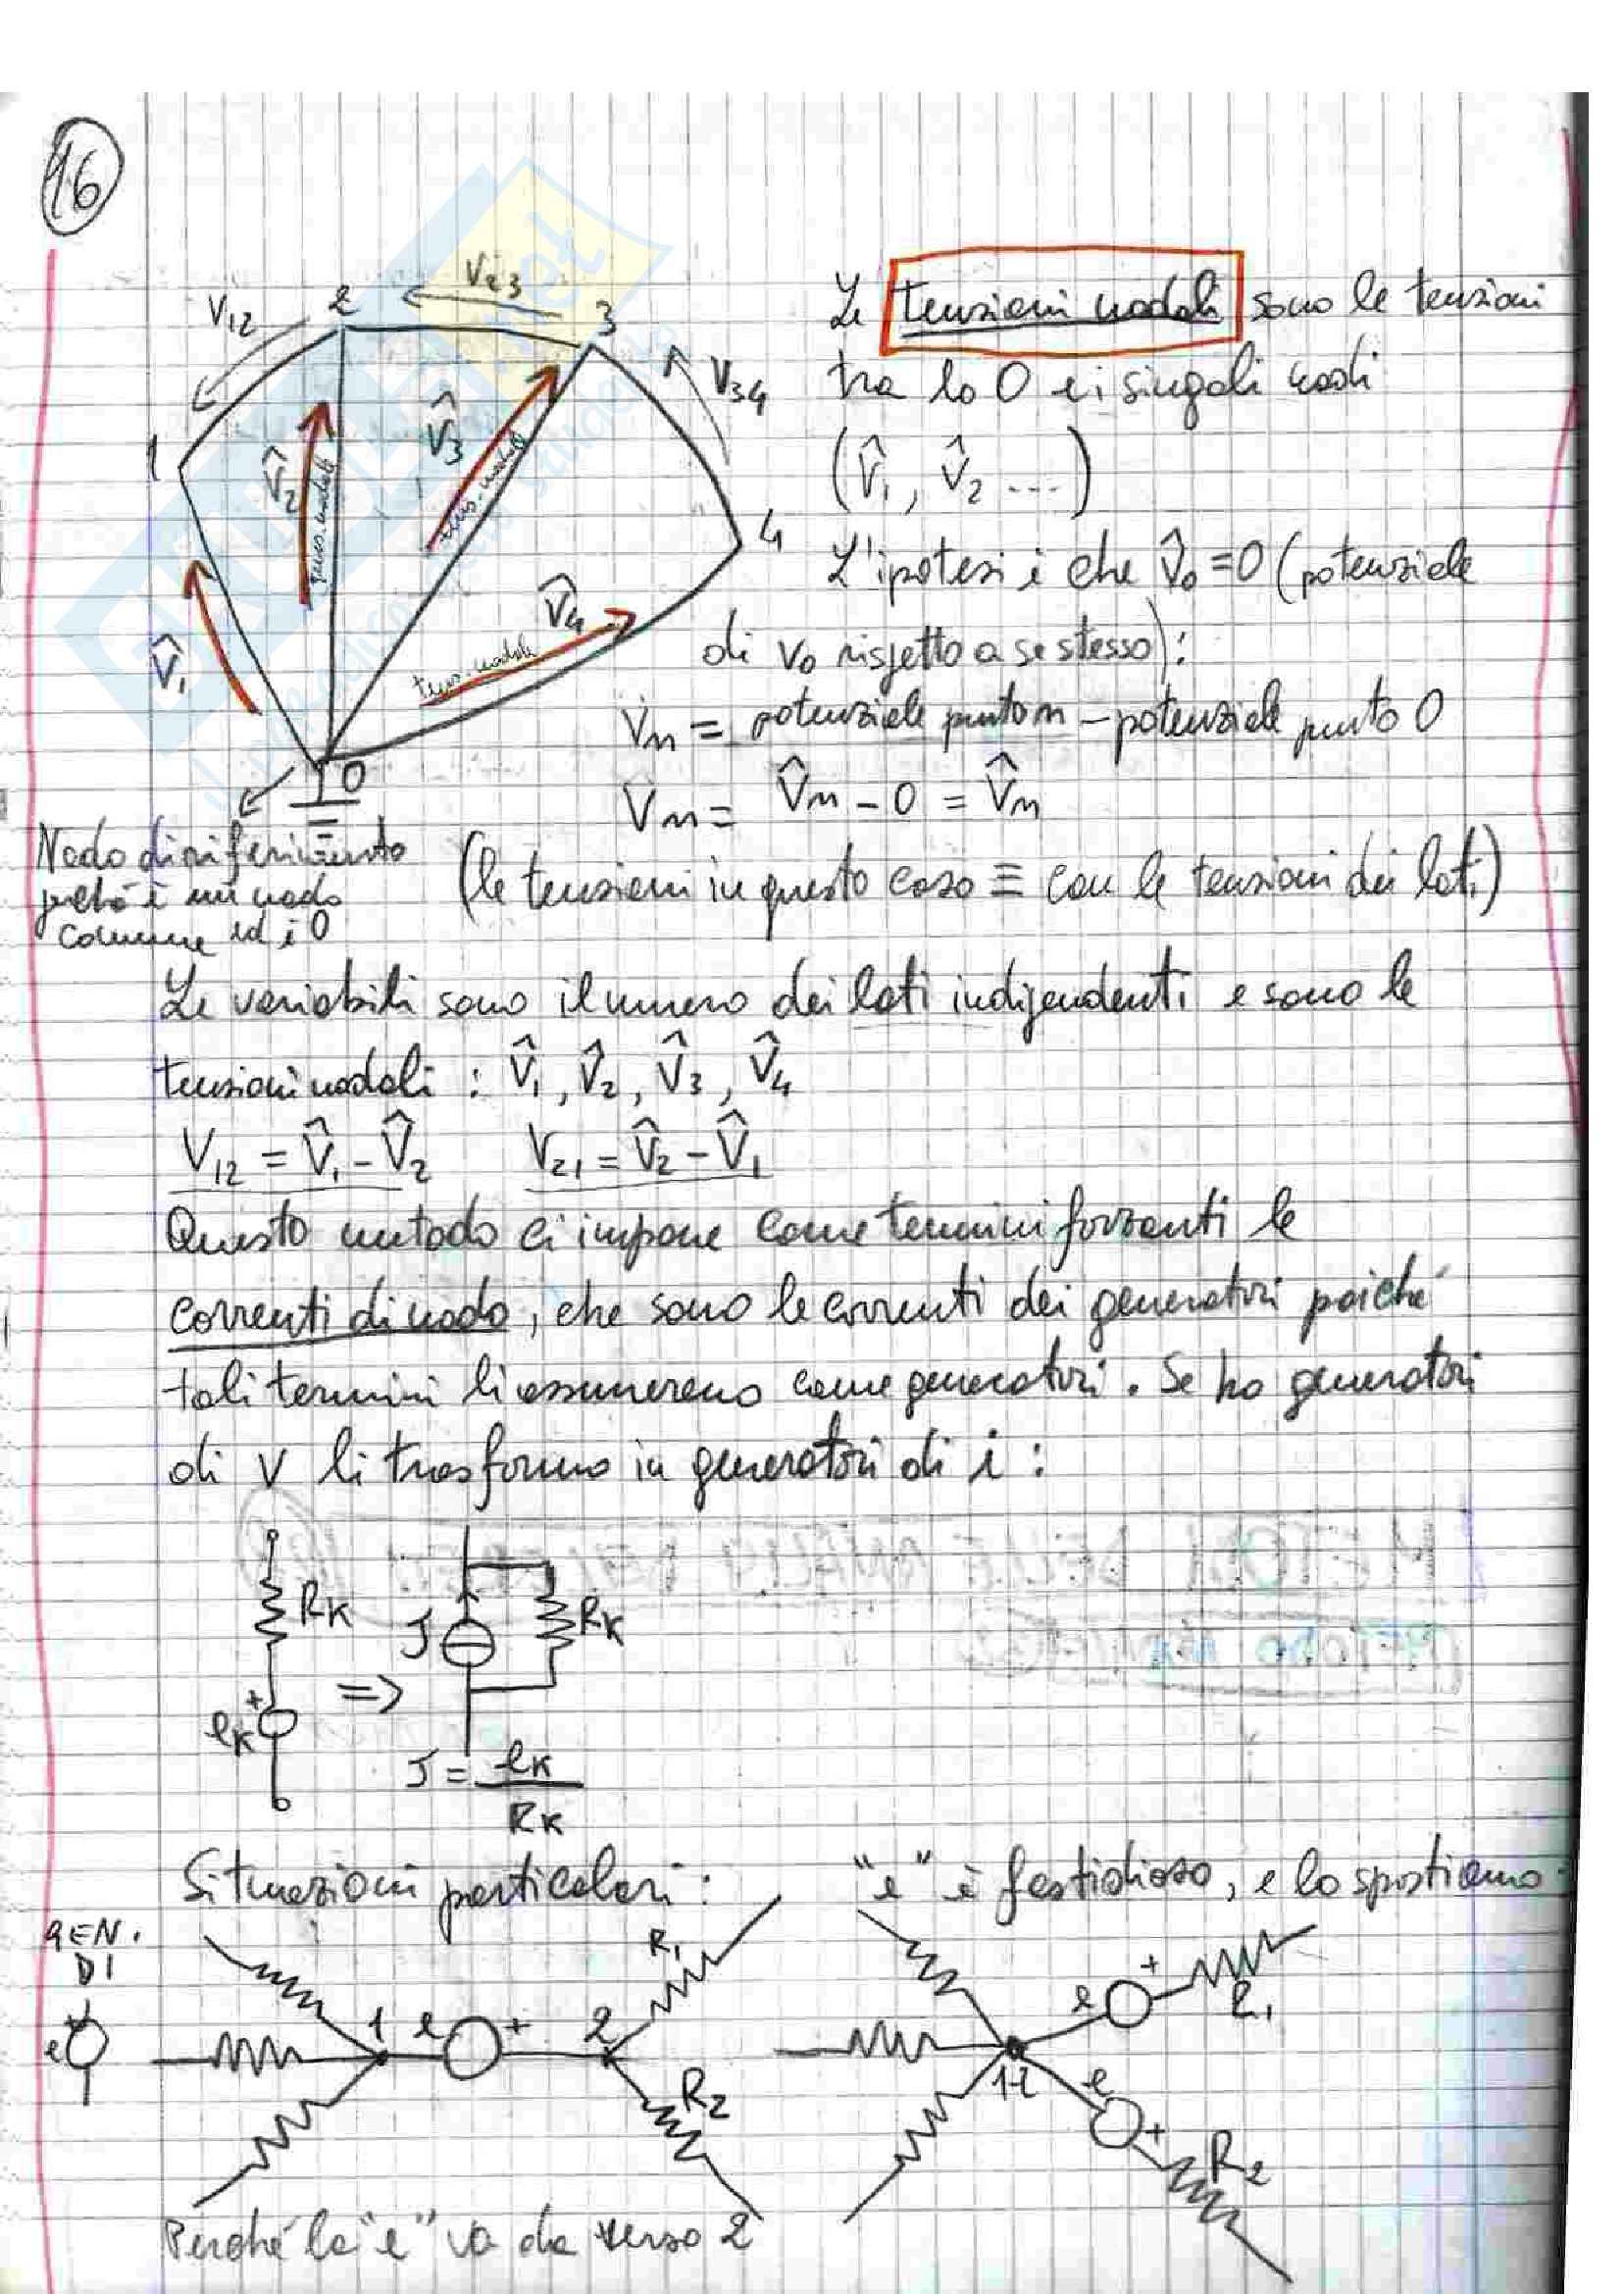 16
V12
2
V23
3
V34
1
4
V̂1
V̂2
V̂3
tens. nodale
V̂4
tens. nodale
0
Le tensioni nodali sono le tensioni
tra lo 0 e i singoli nodi
(V̂1, V̂2 ---)
L'ipotesi è che V̂0 = 0 (potenziale
di V0 rispetto a se stesso):
Vn = potenziale punto n - potenziale punto 0
Vn = V̂n - 0 = V̂n
Nodo di riferimento
perché è un nodo
comune ed è 0
(le tensioni in questo caso ≡ con le tensioni dei lati)
Le variabili sono il numero dei lati indipendenti e sono le
tensioni nodali : V̂1, V̂2, V̂3, V̂4
V12 = V̂1 - V̂2 V21 = V̂2 - V̂1
Questo metodo ci impone come termini forzanti le
correnti di nodo, che sono le correnti dei generatori poiché
tali termini li assumeremo come generatori. Se ho generatori
di V li trasformo in generatori di i :
RK
+
eK
=>
J
RK
J = eK / RK
Situazioni particolari :
"e" è fastidioso, e lo spostiamo :
GEN.
DI
e
+
1
e
+
2
R1
R2
e
+
R1
e
+
R2
Perché la "e" va da verso 2